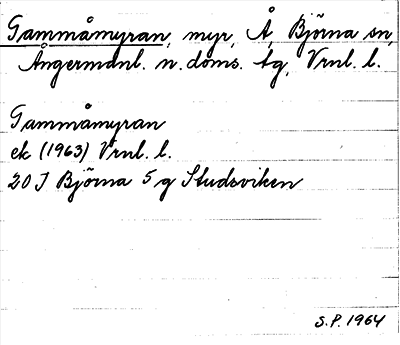 Gammåmyran, myr, Å, Björna sn,
Ångermanl. n. doms. tg, Vrnl. l.
Gammåmyran
ek (1963) Vrnl. l.
20 J Björna 5 g Studsviken
S.P. 1964